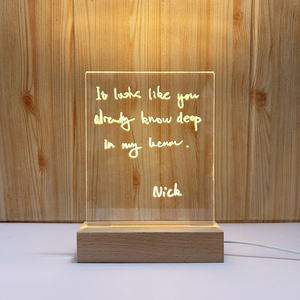 It looks like you
already know deep
in my
Nick